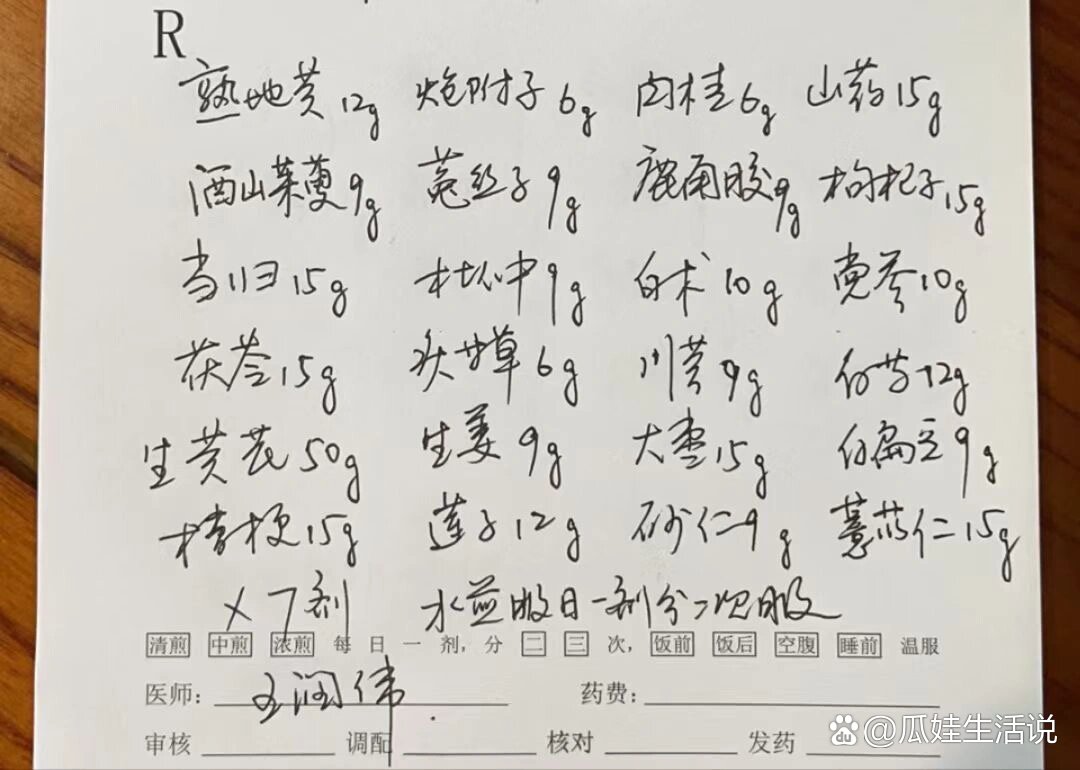 R
熟地黄12g 炮附子6g 肉桂6g 山药15g
酒山茱萸9g 菟丝子9g 鹿角胶9g 枸杞子15g
当归15g 杜仲9g 白术10g 党参10g
茯苓15g 炙甘草6g 川芎9g 白芍12g
生黄芪50g 生姜9g 大枣15g 白扁豆9g
桔梗15g 莲子12g 砂仁9g 薏苡仁15g
×7剂 水煎服日一剂分二次服
清煎 中煎 浓煎 每日一剂,分 二 三 次, 饭前 饭后 空腹 睡前 温服
医师: 王润伟 药费:
审核 调配 核对 发药
Baidu @瓜娃生活说